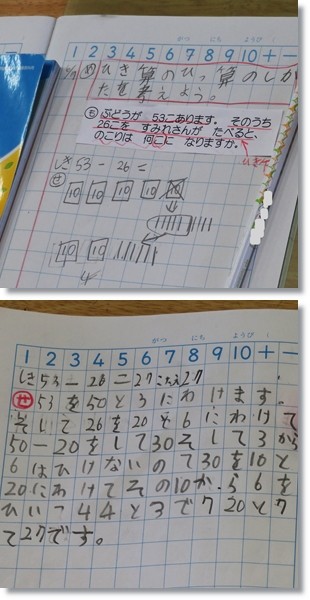 がつ にち ようび
1 2 3 4 5 6 7 8 9 10 + −
め ひき算のひっ算のしか
たを考えよう。
も ぶどうが 53こあります。そのうち
26こを すみれさんが たべると、
のこりは 何こに なりますか。
ひきざん
しき53−26=
せ
10 10 10 10 10
10 10
がつ にち ようび
1 2 3 4 5 6 7 8 9 10 + −
しき53−26=27こたえ27
せ 53を50と3にわけます。
そして26を20と6にわけて
50−20をして30そして3から
6はひけないので30を10と
20にわけてその10から6を
ひいて44と3で7 20と7
で27です。